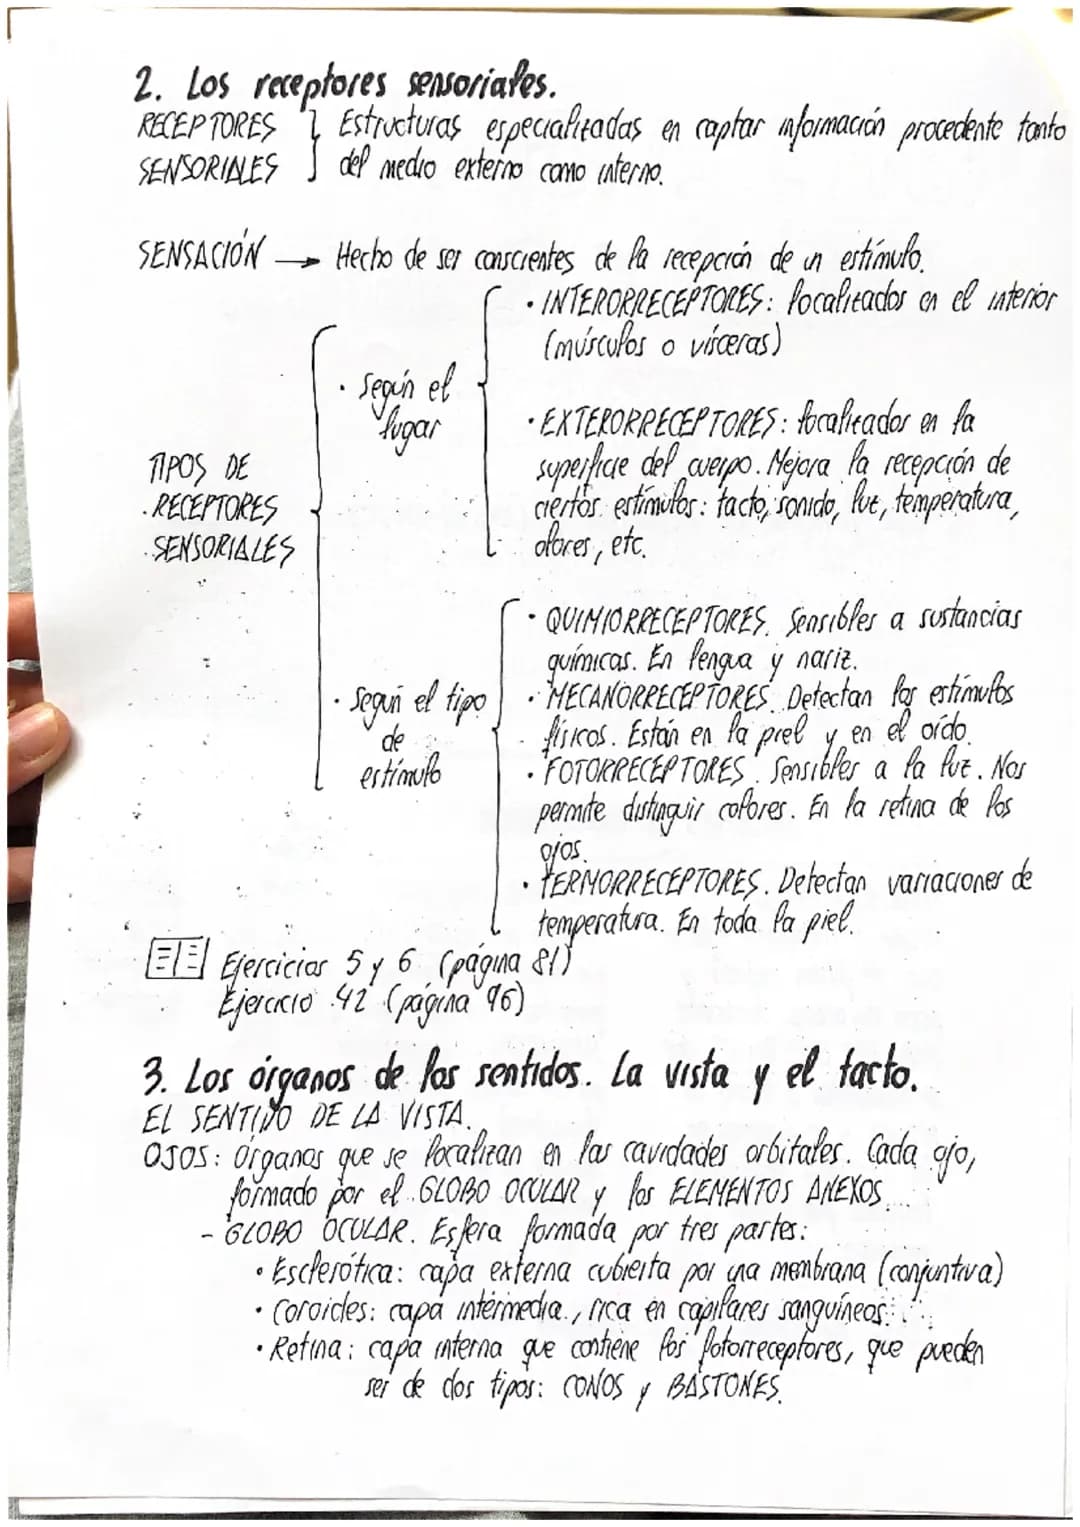 2. Los receptores sensoriales.
RECEPTORES SENSORIALES } Estructuras especializadas en captar información procedente tanto
del medio externo como interno.
SENSACIÓN → Hecho de ser conscientes de la recepción de un estímulo.
TIPOS DE
RECEPTORES
SENSORIALES
· Según el
lugar
· INTERORRECEPTORES: localizados en el interior
(músculos o vísceras)
· EXTERORRECEPTORES: localizados en la
superficie del cuerpo. Mejora la recepción de
ciertos estímulos: tacto, sonido, luz, temperatura,
olores, etc.
· Según el tipo
de
estímulo
· QUIMIORRECEPTORES. Sensibles a sustancias
químicas. En lengua y nariz.
· MECANORRECEPTORES. Detectan los estímulos
físicos. Están en la piel y en el oído.
· FOTORRECEPTORES. Sensibles a la luz. Nos
permite distinguir colores. En la retina de los
ojos.
· TERMORRECEPTORES. Detectan variaciones de
temperatura. En toda la piel.
Ejercicios 5 y 6 (página 81)
Ejercicio 42 (página 96)
3. Los órganos de los sentidos. La vista y el tacto.
EL SENTIDO DE LA VISTA.
OJOS: Órganos que se localizan en las cavidades orbitales. Cada ojo,
formado por el GLOBO OCULAR y los ELEMENTOS ANEXOS.
- GLOBO OCULAR. Esfera formada por tres partes:
· Esclerótica: capa externa cubierta por una membrana (conjuntiva)
· Coroides: capa intermedia, rica en capilares sanguíneos.
· Retina: capa interna que contiene los fotorreceptores, que pueden
ser de dos tipos: CONOS y BASTONES.